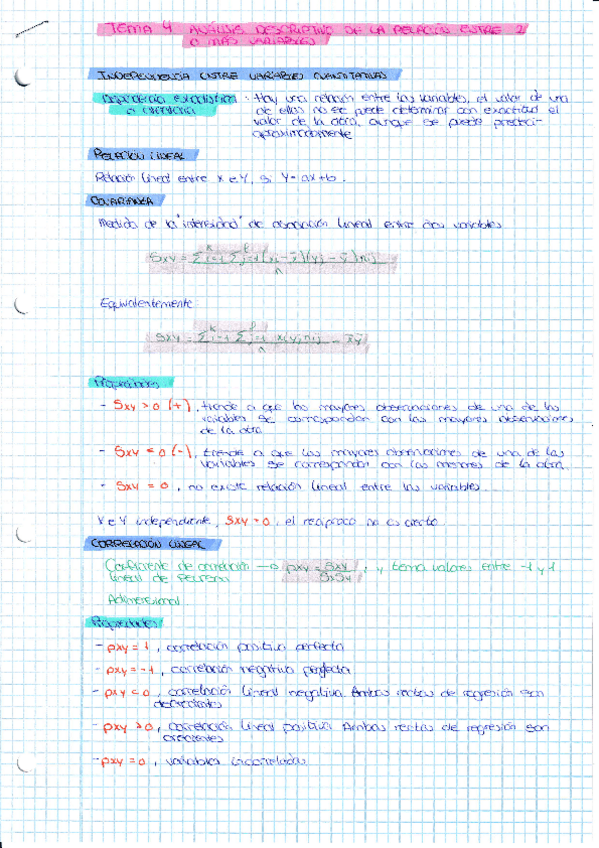 TEMA 4 ANÁLISIS DESCRIPTIVO DE LA RELACIÓN ENTRE 2
O MÁS VARIABLES
INDEPENDENCIA ENTRE VARIABLES CUANTITATIVAS
Dependencia estadística : Hay una relación entre las variables, el valor de una
de ellas no se puede determinar con exactitud el
valor de la otra, aunque se puede predecir
aproximadamente
RELACIÓN LINEAL
Relación lineal entre X e Y, si Y=ax+b.
COVARIANZA
Medida de la "intensidad" de asociación lineal entre dos variables
Sxy = Σ^k i=1 Σ^p j=1 (xi - x̄)(yj - ȳ) nij / n
Equivalentemente
Sxy = Σ^k i=1 Σ^p j=1 xiyjnij / n - x̄ȳ
Propiedades
- Sxy > 0 (+), tiende a que las mayores observaciones de una de las
variables se correspondan con las mayores observaciones
de la otra
- Sxy < 0 (-), tiende a que las mayores observaciones de una de las
variables se correspondan con las menores de la otra.
- Sxy = 0, no existe relación lineal entre las variables.
X e Y independiente, Sxy = 0, el recíproco no es cierto
CORRELACIÓN LINEAL
Coeficiente de correlación → ρxy = Sxy / SxSy ; y toma valores entre -1 y 1
lineal de Pearson
Adimensional
Propiedades
- ρxy = 1, correlación positiva perfecta
- ρxy = -1, correlación negativa perfecta
- ρxy < 0, correlación lineal negativa. Ambas rectas de regresión son
decrecientes
- ρxy > 0, correlación lineal positiva. Ambas rectas de regresión son
crecientes
- ρxy = 0, variables incorreladas